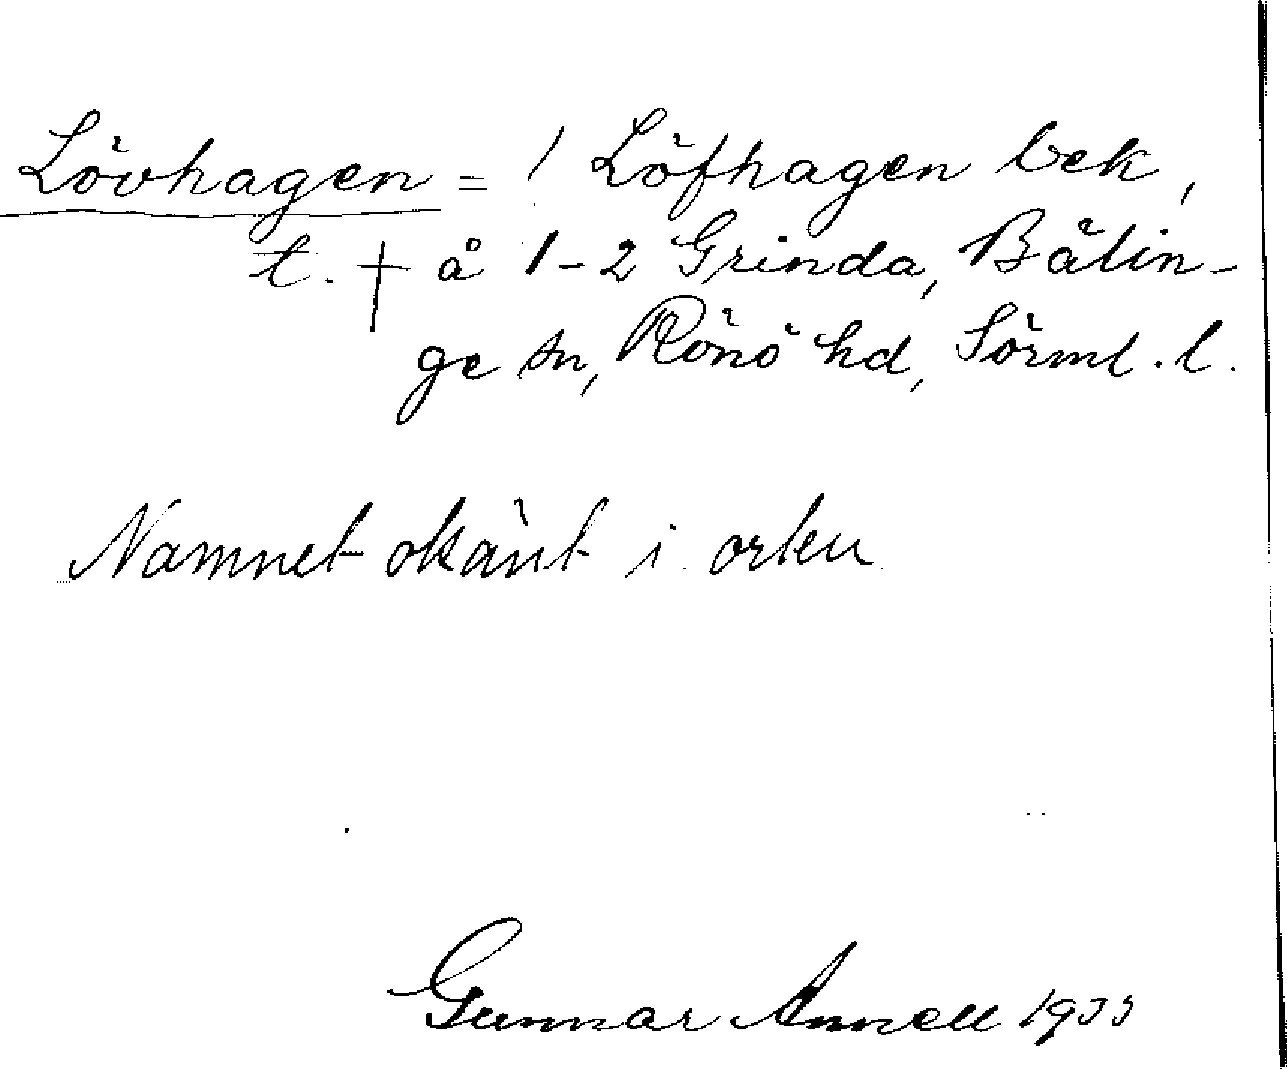 Lövhagen = / Löfhagen bek,
t. † å 1-2 Grinda, Bälin-
ge sn, Rönö hd, Sörml. l.
Namnet okänt i orten
Gunnar Annell 1933